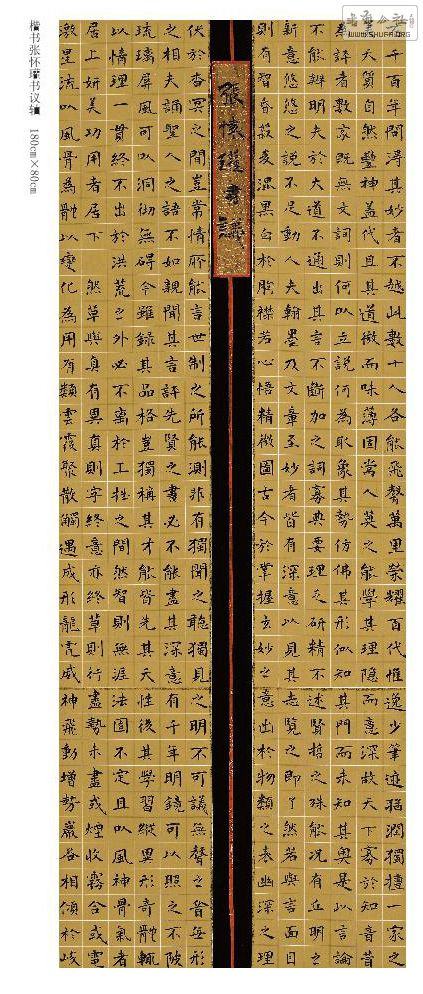 楷书张怀瓘书议轴 180cm×80cm
书法公社
WWW.SHUFA.ORG
千百年間淂其妙者不越此數十人各能飛聲萬里榮耀百代惟逸少筆迹猶潤獨擅一家之
天質自然豐神盖代且其道微而味薄固常人莫之能學其理隱而意深故天下寡於知音昔
評者數家既無文詞則何以立説何為取象其勢仿佛其形似知其門而未知其奧是以言論
不能辨明夫於大道不通出其言不斷加之詞寡典要理乏研精不述賢哲之殊能況有丘明之
新悠悠之説不足動人夫翰墨及文章至妙者皆有深意以見其志覽之即了然若與言面目
則有智昏菽麦混黑白於胷襟若心悟精微圖古今於掌握玄妙之意出於物類之表幽深之理
張懷瓘書議
伏於杳冥之間豈常情所能言世制之所能測非有獨聞之聽獨見之明不可議無聲之音無形
之相夫誦聖人之語不如親聞其言評先賢之書必不能盡其深意有千年明鏡可以照之不陂
琉璃屏風可以洞彻無碍今雖録其品格豈獨稱其才能皆先其天性後其學習縱異形奇體輒
以情理一貫終不出於洪荒之外必不離於工拙之間然智則無涯法固不定且以風神骨氣者
居上妍美功用者居下 然草與真有異真則字終意亦終草則行盡勢未盡或煙收霧合或電
激星流以風骨為體以變化為用有類雲霞聚散觸遇成形龍虎威神飛動增勢巖谷相傾於峻